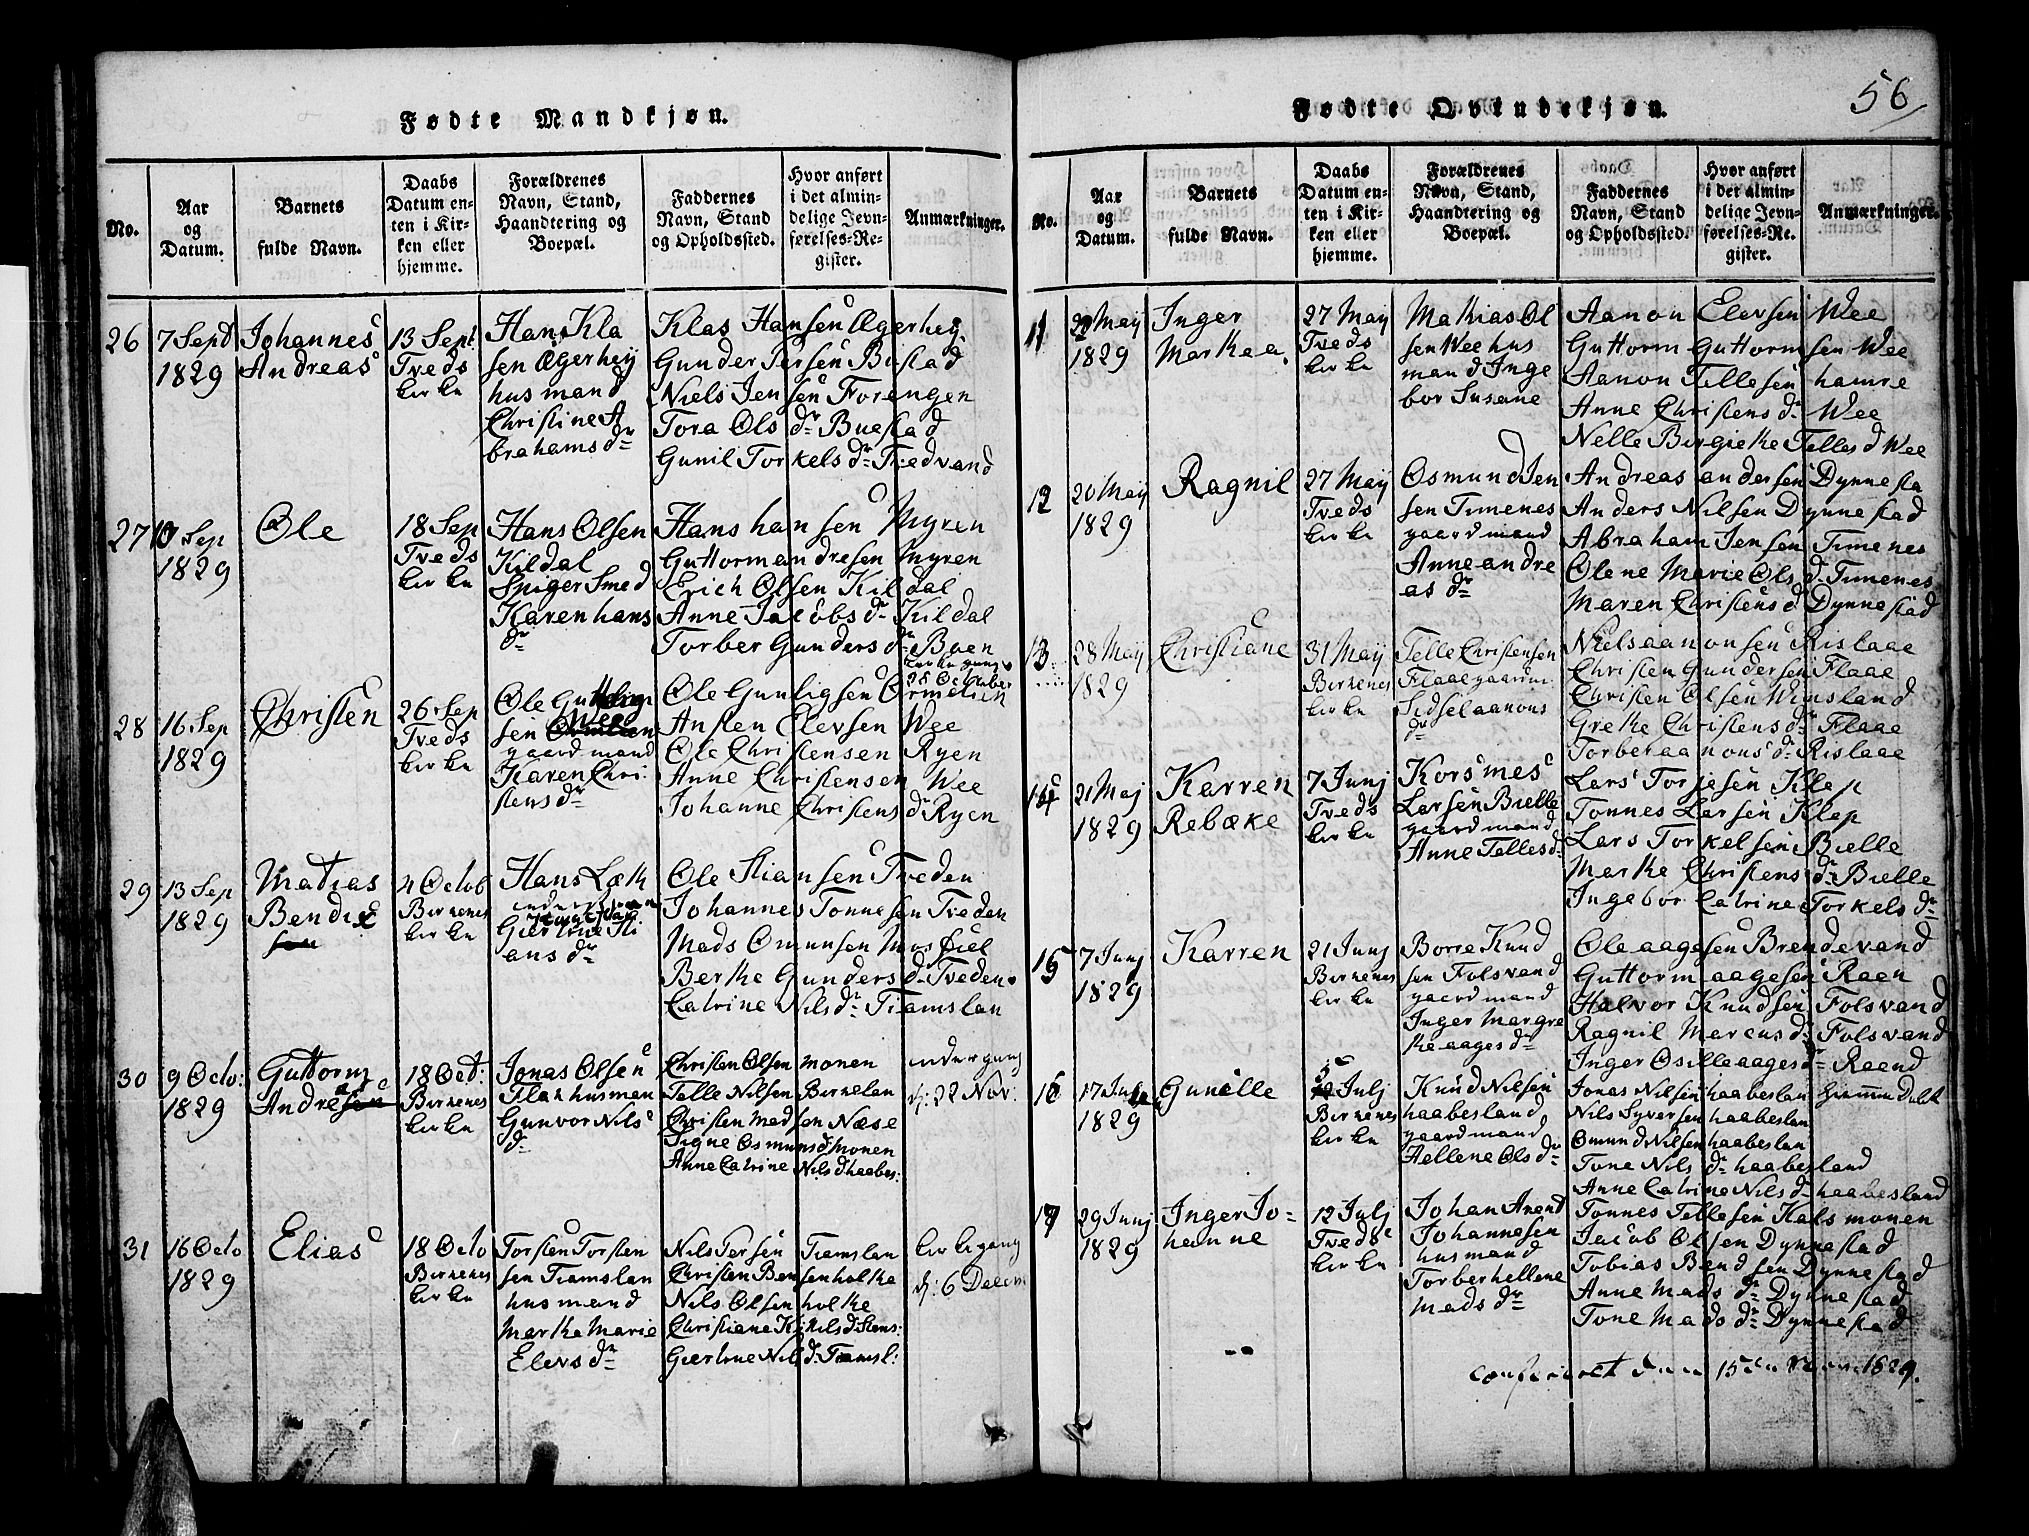 56
Fødte Mandkjøn.
No.
Aar
og
Datum.
Barnets
fulde Navn.
Daabs
Datum en-
ten i Kir-
ken eller
hjemme.
Forældrenes
Navn, Stand,
Haandtering og
Boepæl.
Faddernes
Navn, Stand
og Opholdssted.
Hvor anført
i det almin-
delige Jevn-
førelses-Re-
gister.
Anmærkninger.
26
7 Sept
1829
Johannes
Andreas
13 Sept
Tveds
kirke
Hans Kla
sen Ægerhey
husmand
Christine A
brahamsdr
Klas Hansen Ægerhey
Gunder Jersen Bustad
Niels Jensen Forengen
Tora Olsdr Buestad
Gunil Torkelsdr Tvedvand
27
10 Sep
1829
Ole
18 Sep
Tveds
kirke
Hans Olsen
Kildal
Spigersmed
Karen hans
dr
Hans hansen Myren
Guttorm andresen Myren
Erich Olsen Kildal
Anne Jacobsdr Kildal
Torber Gundersdr Boen
28
16 Sep
1829
Christen
26 Sep
Tveds
kirke
Ole
sen Wee
gaardmand
Karen Chri
stensdr
Ole Gunligsen Ormelien
Ansten Elevsen Wee
Ole Christensen Ryen
Anne Christensen Wee
Johanne Christensdr Ryen
29
13 Sep
1829
Matias
Bendix
sen
4 Octob
Birkenes
kirke
Hans Læk
Giertrue Sti
ansdr
Ole Stiansen Tveden
Johannes Tønnesen Tveden
Mads Omunsen Mosfiel
Berthe Gundersdr Tveden
Catrine Nilsdr Tiamslan
30
9 Octo:
1829
Guttorm
Andreas
18 Oct:
Birkenes
kirke
Jonas Olsen
Flak husman
Gunvor Nils
dr
Christen Olsen monen
Telle Nilsen Birkelan
Christen Madsen Næse
Signe Osmunsdr monen
Anne Catrine Nilsd haabes:
d: 22 Nov:
31
16 Octo
1829
Elias
18 Octo
Birkenes
kirke
Torsten Torsten
sen Tiamslan
husmand
Marthe Marie
Elevsdr
Nils Tersen Tiamslan
Christen Bensen holte
Nils Olsen holte
Christiane Nilsd Stens:
Giertrue Nilsdr Tiamsl:
kirkegang
d: 6 Decem
Fødte Qvindekjøn.
No.
Aar
og
Datum.
Barnets
fulde Navn.
Daabs
Datum en-
ten i Kir-
ken eller
hjemme.
Forældrenes
Navn, Stand,
Haandtering og
Boepæl.
Faddernes
Navn, Stand
og Opholdssted.
Hvor anført
i det almin-
delige Jevn-
førelses-Re-
gister.
Anmærkninger.
11
May
1829
Inger
Marthea
27 May
Tveds
kirke
Mathias Ol
sen Wee hus
mand Inge
bor Susane
Aanon Elevsen Wee
Guttorm Guttormsen Wee
Aanon Tellesen hamre
Anne Christensdr Wee
Nelle Birgiethe Tellesd Wee
12
20 May
1829
Ragnil
27 May
Tveds
kirke
Osmund Jen
sen Timenes
gaardmand
Anne andre
asdr
Andreas andersen Dynnesta
Anders Nilsen Dynnestad
Abraham Jensen Timenes
Olene Marie Olsdr Timenes
Maren Christensd Dynnestad
13
28 May
1829
Christiane
31 May
Birkenes
kirke
Telle Christensen
Flaae gaardm
Sidsel aanons
dr
Niels aanonsen Rislaae
Christen Gundersen Flaae
Christen Olsen Winsland
Grethe Christensdr Flaae
Torber aanonsdr Rislaae
14
21 Maj
1829
Karren
Rebæke
7 Junj
Tveds
kirke
Korsmes
Larsen Bielle
gaardmand
Anne Tellesdr
Lars Torjesen Klep
Tønnes Larsen Klep
Lars Torkelsen Bielle
Marthe Christensdr Bielle
Ingebor Catrine Torkelsdr
15
7 Junj
1829
Karren
21 Junj
Birkenes
kirke
Borre Knud
sen Folsvand
gaardmand
Inger Margre
the aagesdr
Ole aagesen Brendevand
Guttorm aagesen Raen
Halvor Knudsen Folsvand
Ragnil Marcusdr Folsvand
Inger Osille aagesdr Raend
16
1829
Gunille
5
Julj
Birkenes
kirke
Knud Nilsen
haabesland
gaardmand
Hellene Olsdr
Jonas Nilsen haabeslan
Nils Syversen haabeslan
Omund Nilsen haabeslan
Tone Nilsdr haabesland
Anne Catrine Nilsdr haabesland
hiemmedøbt
17
29 Junj
1829
Inger Jo-
hanne
12 Julj
Tveds
kirke
Johan Arend
Johannesen
husmand
Torber hellene
Madsdr
Tønnes Tellesen Kalsmonen
Jacob Olsen Dynnestad
Tobias Bendsen Dynnestad
Anne Madsdr Dynnestad
Tone Madsdr Dynnestad
1829.